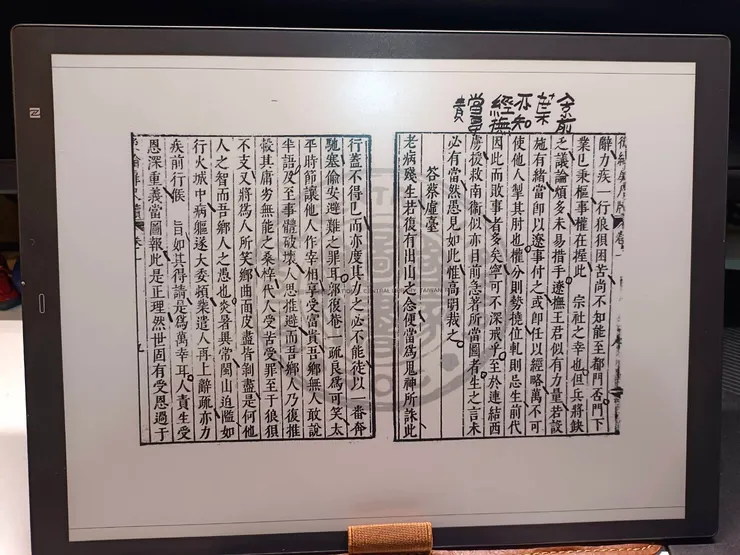 前
葉
不知
經撫
辭力疾一行狼狽困苦尚不知能至都門否門下
業已秉樞事權在握此 宗社之幸也但兵將鈌
乏議論頗多未易措手遼撫王君似有力量若設
施有緒當卽以遼事付之或卽任以經略萬不可
使他人掣其肘也權分則勢撓位軋則忌生前代
因此而敗事者多矣寧可不深戒乎至於連結西
虜援救南衛似亦目前急著所當圖者生之言未
必有當然愚見如此惟高明裁之
答蔡虛臺
老病殘生若復有出山之念便當爲鬼神所誅此
行蓋不得已而亦度其力之必不能徒以一番奔
馳塞偷安避難之罪耳郭後菴一疏良爲可笑太
平時節讓他人作宰相享受富貴吾鄉無人敢說
半語及至事體破壞人思推避而吾鄉人乃復推
轂其庸劣無能之桑梓代人受苦受罪至于狼狽
不支又將爲人所笑鄉曲面皮盡皆剝盡是何他
人之智而吾鄉人之愚也炎暑異常關山迫隘如
行火城中病軀遂大委頓業遣人再上辭疏亦力
疾前行候 旨如其得請是爲萬幸耳人責生受
恩深重義當圖報此是正理然世固有受恩過于